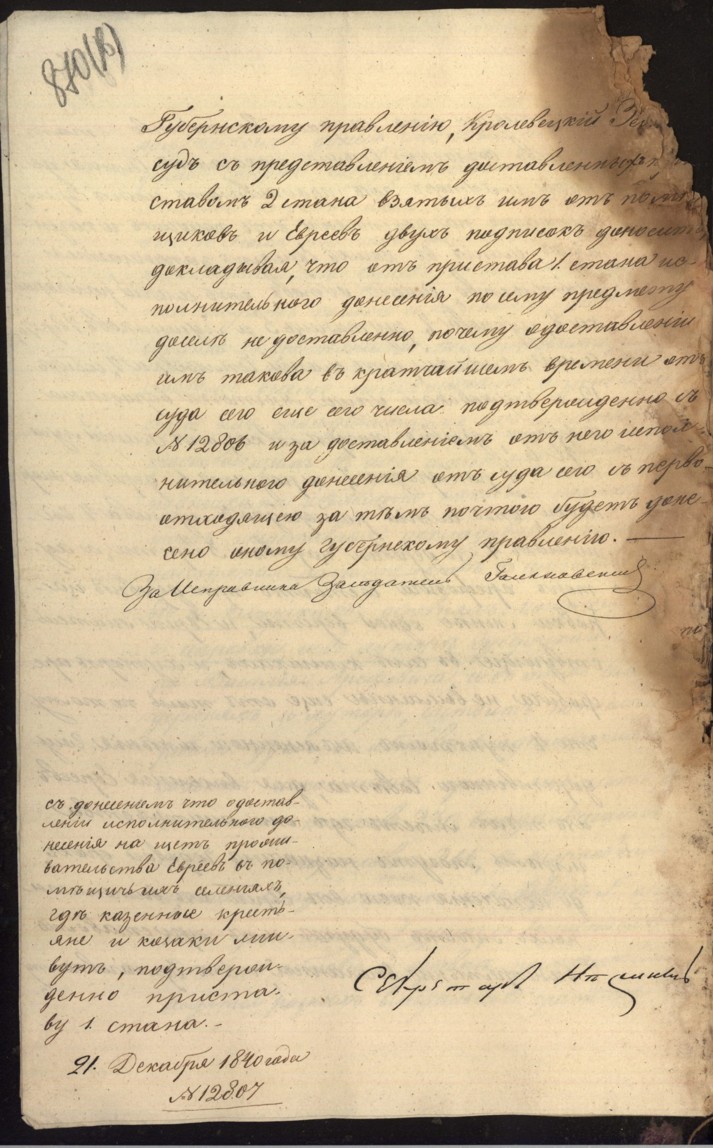 870(в)
Губернскому правленію, Кролевецкій
судъ съ представленіемъ доставленныхъ
ставомъ 2 стана взятыхъ имъ отъ помѣ
щиковъ и Евреевъ двухъ подписокъ доноситъ
докладывая, что отъ пристава 1. стана ис-
полнительного донесенія по сему предмету
доселѣ не доставленно, почему о доставленіи
имъ такова въ кратчайшемъ времени отъ
суда сего еще сего числа подтвержденно съ
№ 12806 и за доставленіемъ отъ него испол-
нительного донесенія отъ суда сего съ перво-
отходящею за тѣмъ почтою будетъ доне-
сено оному губернскому правленію. —
За Исправника Засѣдатель
съ донесеніемъ что о достав-
леніи исполнительного до-
несенія на щетъ прожи-
вательства Евреевъ въ по-
мѣщичьихъ селеніяхъ,
гдѣ казенные кресть-
яне и козаки жи-
вутъ, подтверж-
денно приста-
ву 1. стана. -
Секретарь
21. Декабря 1840 года
№ 12807